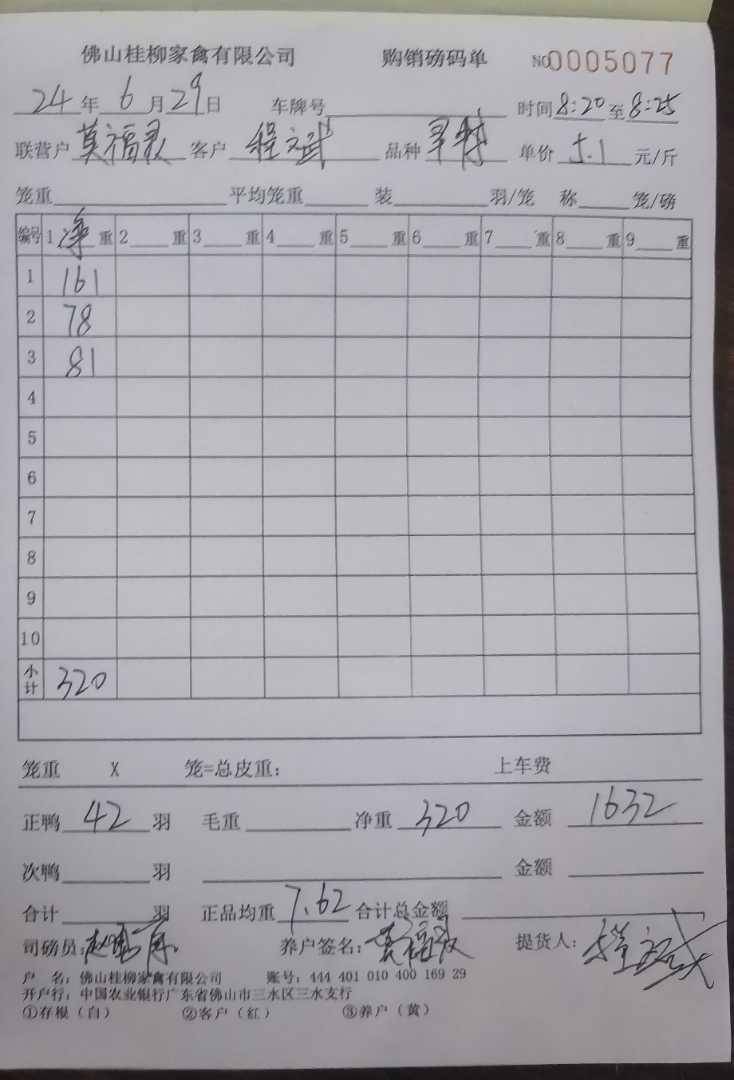 佛山桂柳家禽有限公司 购销磅码单 NO 0005077
24年6月29日 车牌号 时间8:20至8:25
联营户 莫福灵 客户 程文武 品种 单价 5.1 元/斤
笼重 平均笼重 装 羽/笼 称 笼/磅
编号 1净重 2 重 3 重 4 重 5 重 6 重 7 重 8 重 9 重
1 161
2 78
3 81
4
5
6
7
8
9
10
小计 320
笼重 X 笼=总皮重: 上车费
正鸭 42 羽 毛重 净重 320 金额 1632
次鸭 羽 金额
合计 羽 正品均重 7.62 合计总金额
司磅员: 养户签名: 莫福灵 提货人: 程文武
户 名: 佛山桂柳家禽有限公司 账号: 444 401 010 400 169 29
开户行: 中国农业银行广东省佛山市三水区三水支行
①存根（白） ②客户（红） ③养户（黄）